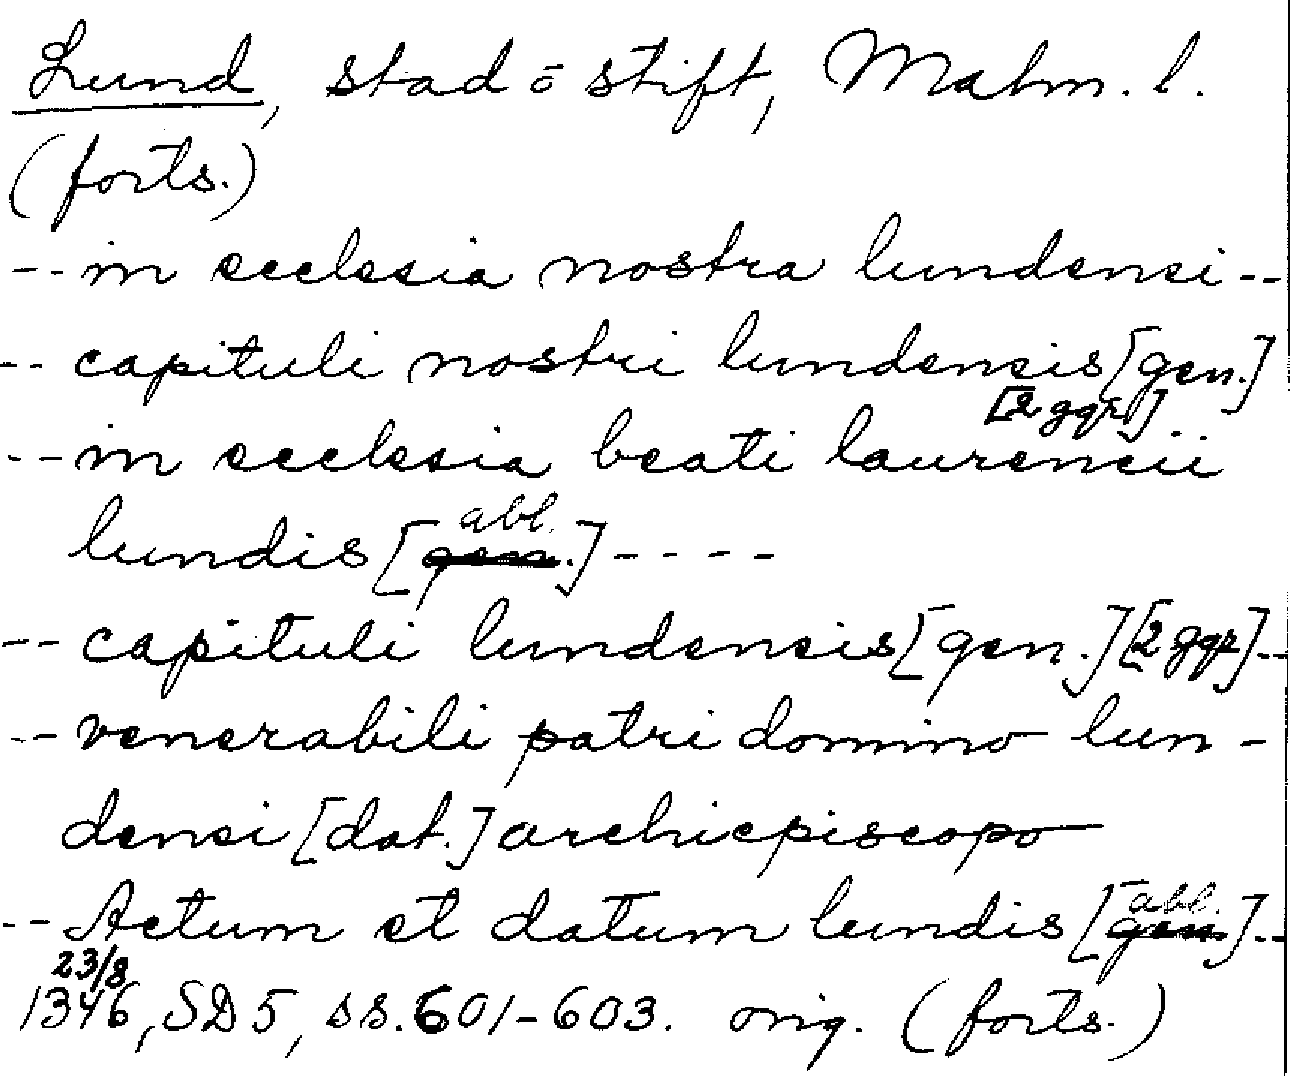 Lund, stad ō stift, Malm. l.
(forts.)
-- in ecclesia nostra lundensi --
-- capituli nostri lundensis [gen.]
[2 ggr]
-- in ecclesia beati laurencii
abl.
lundis [gen.] ----
-- capituli lundensis [gen.] [2 ggr] --
-- venerabili patri domino lun-
densi [dat.] archiepiscopo
abl.
-- Actum et datum lundis [gen.] --
23/8
1346, SD 5, ss. 601-603. orig. (forts.)